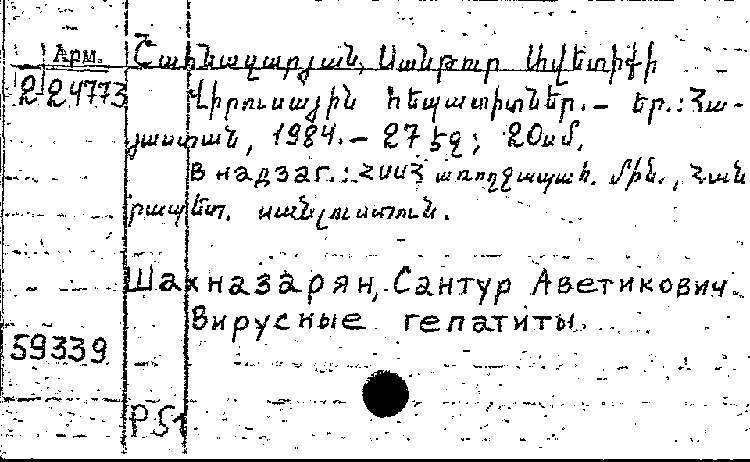 Арм.
Շահնազարյան, Սանթուր Ավետիքի
2 24773
Վիրուսային հեպատիտներ. — Եր.: Հա-
յաստան, 1984. — 27 էջ; 20սմ.
В надзаг.: ՀՍՍՀ առողջապահ. մին., Հան
րապետ. սանլուստուն.
Шахназарян, Сантур Аветикович.
Вирусные гепатиты.
59339
Р51